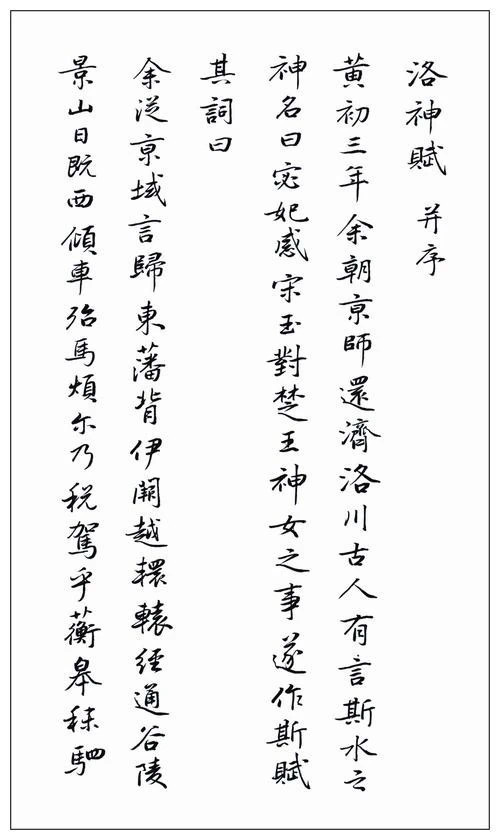 洛神賦 并序
黄初三年余朝京師還濟洛川古人有言斯水之
神名曰宓妃感宋玉對楚王神女之事遂作斯賦
其詞曰
余從京域言歸東藩背伊闕越轘轅經通谷陵
景山日既西傾車殆馬煩尔乃税駕乎蘅皋秣駟